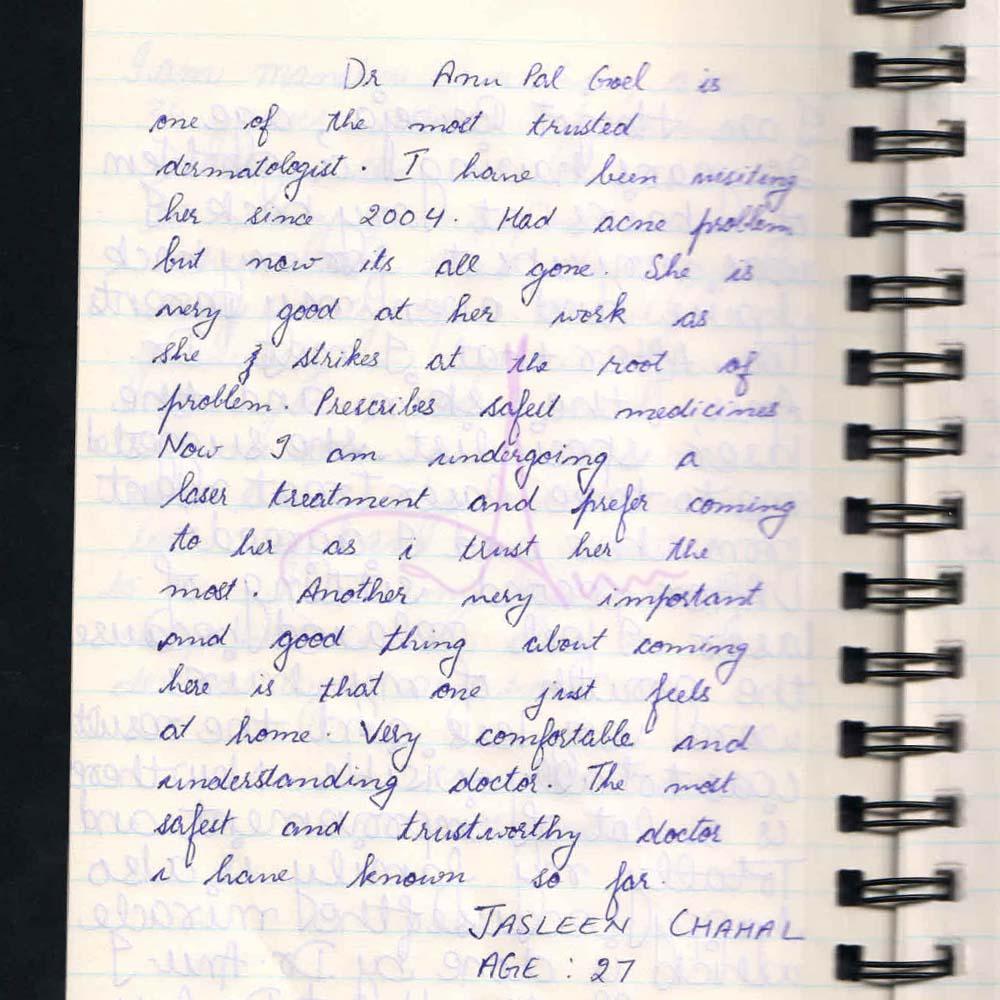 Dr Anu Pal Goel is
one of the most trusted
dermatologist. I have been visiting
her since 2004. Had acne problem
but now its all gone. She is
very good at her work as
she strikes at the root of
problem. Prescribes safest medicines
Now I am undergoing a
laser treatment and prefer coming
to her as i trust her the
most. Another very important
and good thing about coming
here is that one just feels
at home. Very comfortable and
understanding doctor. The most
safest and trustworthy doctor
i have known so far.
JASLEEN CHAHAL
AGE : 27